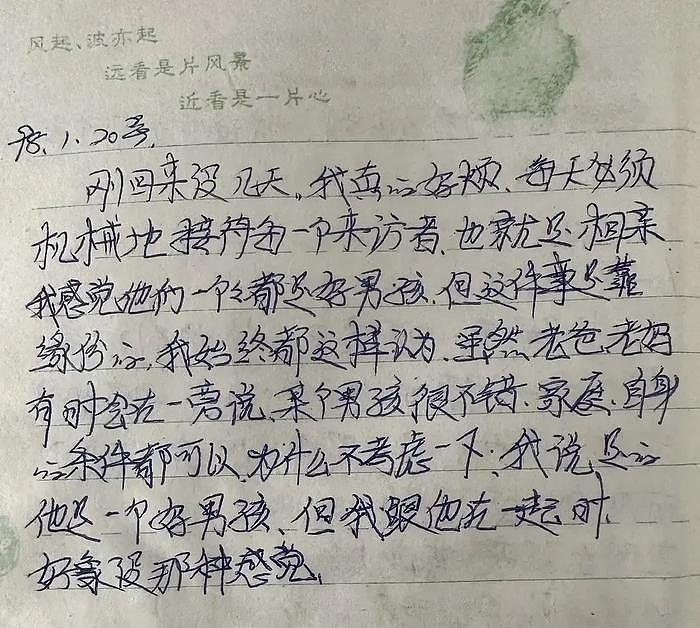 风起、波亦起
远看是片风景
近看是一片心
98.1.20号.
刚回来没几天。我真的好烦、每天必须
机械地接待每一个来访者.也就是相亲.
我感觉他们一个个都是好男孩.但这件事是靠
缘份的,我始终都这样认为.虽然老爸、老妈
有时会在一旁说.某个男孩很不错.家庭.自身
的条件都可以,为什么不考虑一下;我说是的
他是一个好男孩、但我跟他在一起时.
好象没那种感觉.